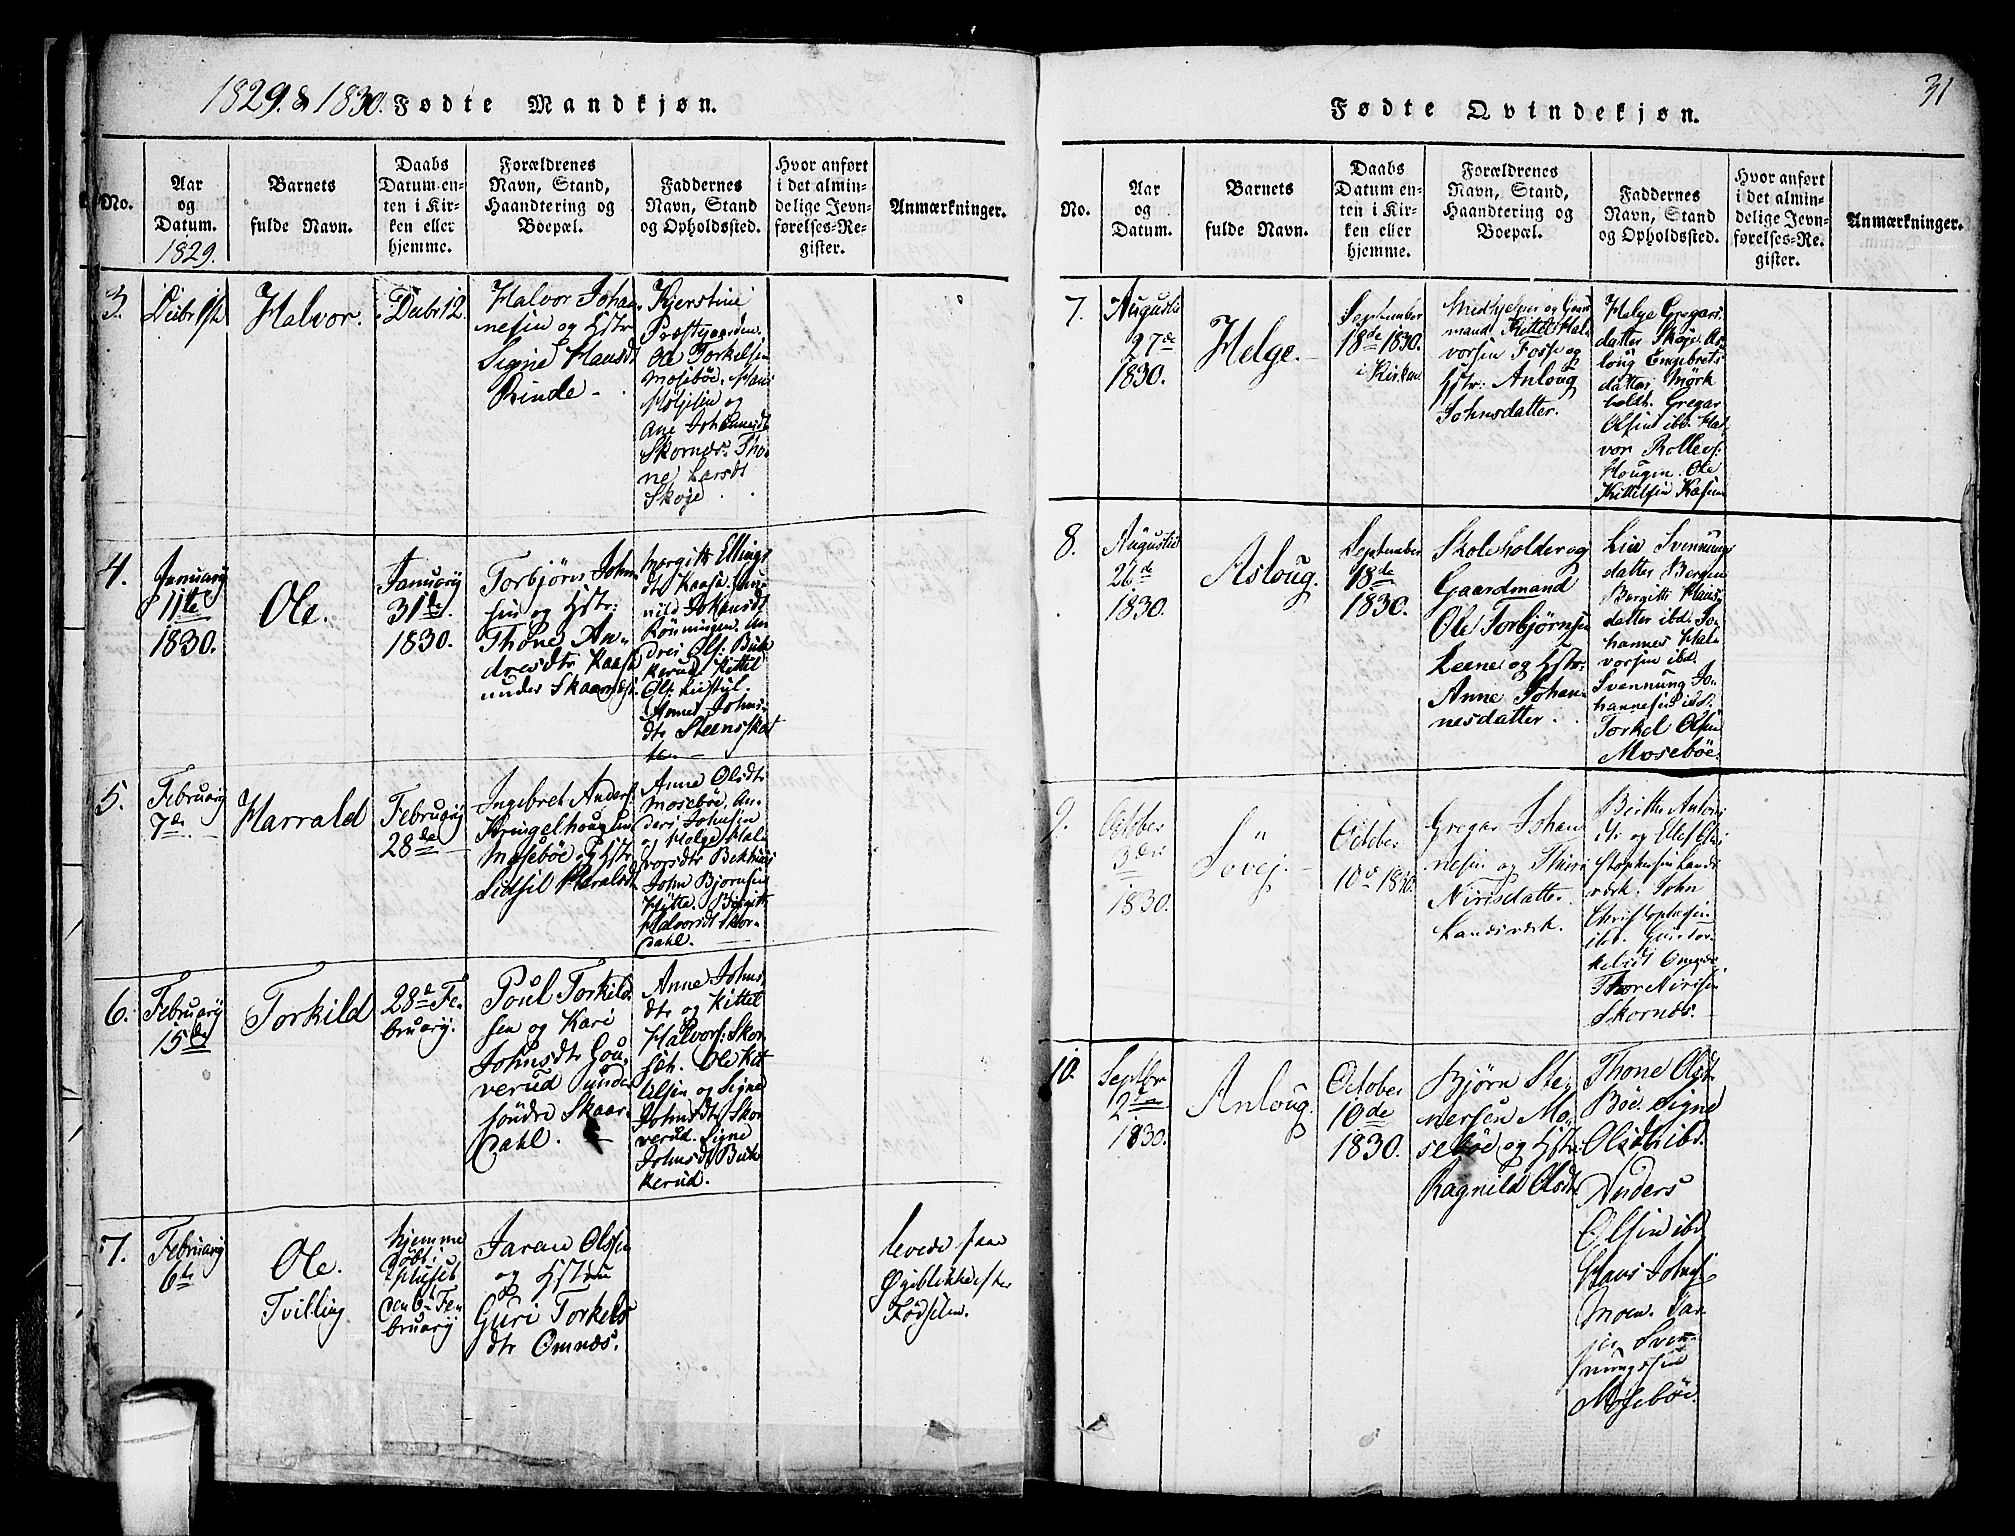 1829. & 1830. Fødte Mandkjøn.
No.
Aar
og
Datum.
1829.
Barnets
fulde Navn.
Daabs
Datum en-
ten i Kir-
ken eller
hjemme.
Forældrenes
Navn, Stand,
Haandtering og
Boepæl.
Faddernes
Navn, Stand
og Opholdssted.
Hvor anført
i det almin-
delige Jevn-
førelses-Re-
gister.
Anmærkninger.
3.
Debr 1ste
Halvor.
Debr 12.
Halvor Johan-
nesen og Hstr
Signe Hansdt
Rinde -
Kjerstine
Præstgaarden.
Ole Torkelsen
Mosebøe. Hans
Holjesen og
Ane Johannesdt
Skornæs. Tho-
ne Larsdt
Skoje.
4.
January
11te
1830.
Ole.
January
31te
1830.
Torbjörn John-
sen og Hstr:
Thone An-
dresdtr Kaasa
under Skaarnæs.
Margith Ellings
dtr Kaase. Gun-
nild Johansdt
Rönningen. An-
dres Ols: Buk-
kerud. Kittel
Ols:
Johns-
dtr Steensskot
te.
5.
February
7de
Harrald
February
28de
Ingebret Anders:
Kringelhougen
Mosebøe. & Hstr
Sidsel Haralsdt
Anne Olsdtr
Mosebøe. An-
ders Johnsen
og Holge Hal-
vorsdtr Bekhuus
John Bjørnsen
Hytte. Birgitte
Halvorsdt Skor-
dahl.
6.
February
15de
Torkild
28de Fe-
bruary.
Poul Torkild-
sen og Kari
Johnsdtr Gou-
verud under
søndre Skaar-
dahl.
Anne Johns-
dtr og Kittel
Halvors: Skor-
seth. Ole Kit-
tilsen og Signe
Johnsdtr Skor
verud. Signe
Johnsdt Buk-
kerud.
7.
February
6te
Ole.
Tvilling
hjemme
døbt i
Huset
den 6te Fe-
bruary
Jaran Olssen
og Hstru
Guri Torkels
dtr Omnæs.
levede faae
Øyeblikke efter
Fødselen.
31
Fødte Qvindekjøn.
No.
Aar
og
Datum.
Barnets
fulde Navn.
Daabs
Datum en-
ten i Kir-
ken eller
hjemme.
Forældrenes
Navn, Stand,
Haandtering og
Boepæl.
Faddernes
Navn, Stand
og Opholdssted.
Hvor anført
i det almin-
delige Jevn-
førelses-Re-
gister.
Anmærkninger.
7.
Augustii
27de
1830.
Helge.
September
18de 1830.
i Kirken
Medhjelper og Gaard
mand Kittel Hal-
vorsen Fosse og
Hstr: Anloug
Johnsdatter.
Helge Gregars
datter Skoje. As-
loug Engebrets
datter Mörk
holdt. Gregar
Olsen ibd. Hal-
vor Rolleivs:
Hougen. Ole
Kittelsen Kasin
8.
Augustii
26de
1830.
Asloug.
September
18de
1830.
Skoleholder og
Gaardmand
Ole Torbjørnsen
Leene og Hstr:
Anne Johan-
nesdatter.
Liv Svennungs
datter Bergen
Birgitte Hans-
datter ibd. Jo-
hannes Hal-
vorsen ibd.
Svennung Jo-
hannesen ibd.
Torkel Olsen
Mosebøe.
9.
October
3die
1830.
Sövej.
October
10de 1830.
Gregar Johan
nesen og Thuri
Nirisdatter
Landsværk.
Birthe Antoni
dtr og Ellef Chri
stophersen Lands
værk. John
Christophersen
ibd. Guri Tor-
kelsdt Omnæs
Thor Nirisen
Skornæs.
10.
Septbr
2den
1830.
Anloug.
October
10de
1830.
Bjørn Ste-
nersen Mo-
sebøe og Hstr:
Ragnild Olsdt
Thone Olsdt
Bøe. Signe
Olsdtr ibd.
Anders
Olsen ibd
Hans Johns:
Moen. Tar-
jei Sven-
nungssen
Mosebøe.